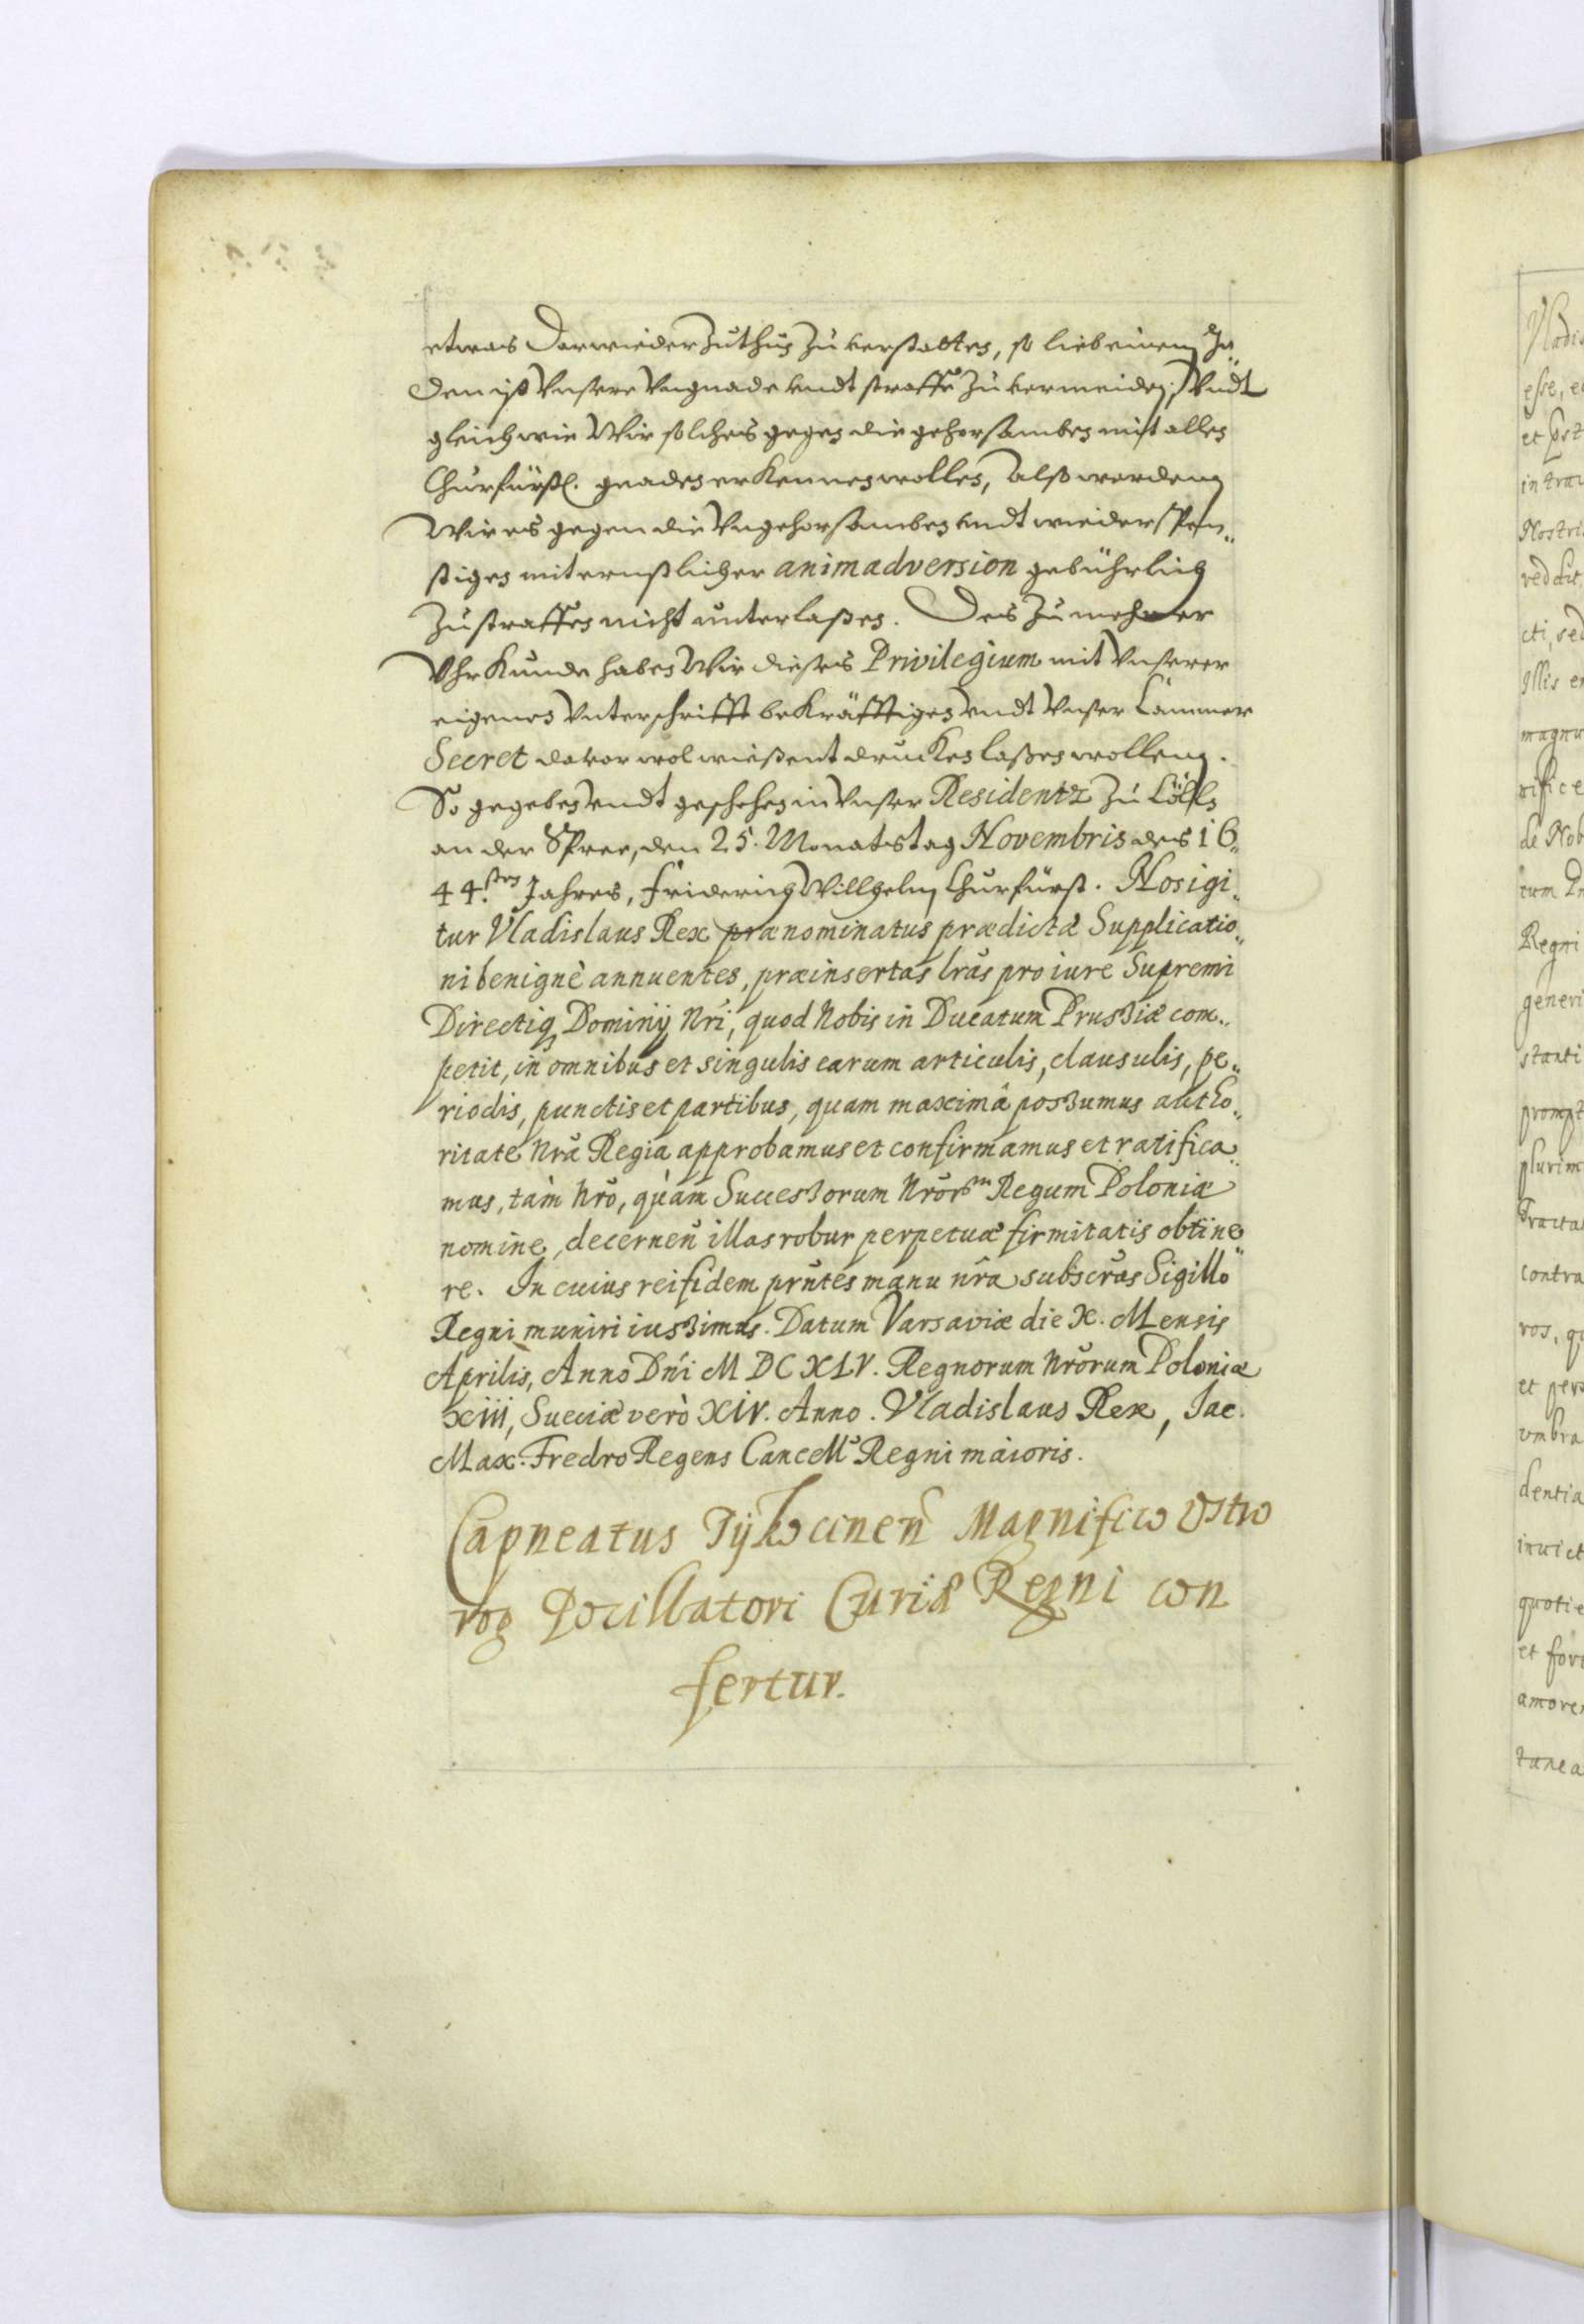 etwas darwieder zuthun zu verstatten, so lieb einem Je„
den ist Unsere Ungnade undt straffe zu vermeiden, Undt
gleich wie Wir solches gegen die gehorsamben mit allen
Churfürstl. gnaden erkennen wollen, Alß werden
Wir es gegen die Ungehorsamben undt wiederspen„
stigen mit ernstlicher animadversion gebührlich
zu straffen nicht unterlaßen. Des zu mehrer
Uhrkunde haben Wir dießes Privilegium mit Unserer
eigenen Unterschrifft bekräfftigen undt Unser Cammer
Secret davor wolwießent drucken laßen wollen.
So gegeben undt geschehen in Unser Residentz zu Cölln
an der Spree, den 25. Monatstag Novembris des 16„
44.sten Jahres, Friderich Willhelm Churfürst. Nos igi„
tur Vladislaus Rex prænominatus prædictæ Supplicatio„
ni benignè annuentes, præinsertas lras pro iure Supremi
Directiq Dominij Nri, quod Nobis in Ducatum Prussiæ com„
petit, in omnibus et singulis earum articulis, clausulis, pe„
riodis, punctis et partibus, quam maximâ possumus autho„
ritate Nrâ Regia approbamus et confirmamus et ratifica„
mus, tàm Nrõ, quàm Successorum Nrorm Regum Poloniæ
nomine, decernen illas robur perpetuæ firmitatis obtine„
re. In cuius rei fidem prntes manu nrâ subscras Sigillo
Regni muniri iussimus. Datum Varsaviæ die X. Mensis
Aprilis, Anno Dni MDCXLV. Regnorum Nrorum Poloniæ
xiii, Sueciæ verò XIV. Anno. Vladislaus Rex, Jac.
Max. Fredro Regens Cancell Regni maioris.
Capneatus Tykocinen Magnifico Ostro
rog Pocillatori Curiæ Regni con
fertur.